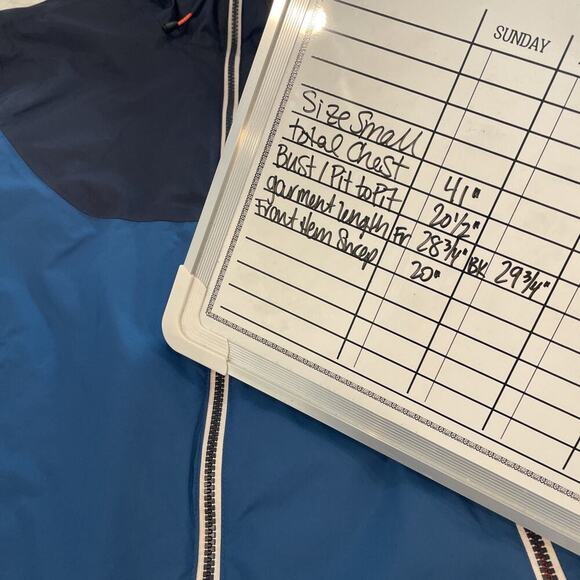 SUNDAY
Size Small
total Chest 41"
Bust / Pit to Pit 20 1/2"
garment length Fr 28 3/4" BK 29 3/4"
Front Hem Snap 20"